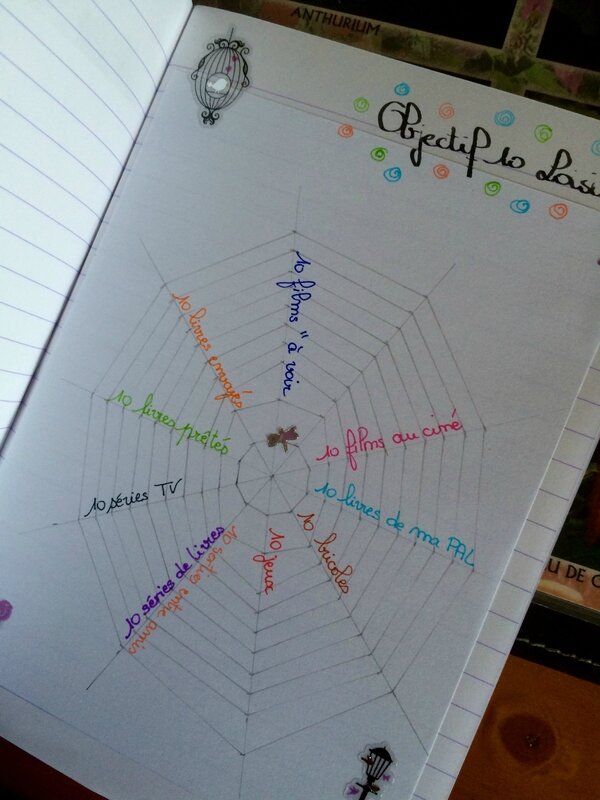 ANTHURIUM
Objectif 10 Loisi
10 films "à voir
10 films au ciné
10 livres de ma PAL
10 bricoles
10 jeux
10 sorties entre amis
10 séries de livres
10 séries TV
10 livres prêtés
10 livres envoyés
U DE C